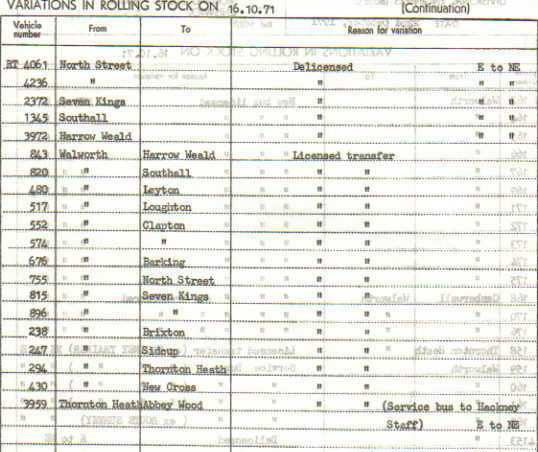 VARIATIONS IN ROLLING STOCK ON 16.10.71 (Continuation)
Vehicle number From To Reason for variation
RT 4061 North Street Delicensed E to NE
4236 " " " "
2372 Seven Kings " " "
1345 Southall " " "
3972 Harrow Weald " " "
843 Walworth Harrow Weald Licensed transfer
820 " Southall " "
480 " Leyton " "
517 " Loughton " "
552 " Clapton " "
574 " " " "
676 " Barking " "
755 " North Street " "
815 " Seven Kings " "
896 " " " " "
238 " Brixton " "
247 " Sidcup " "
294 " Thornton Heath " "
430 " New Cross " "
3959 Thornton Heath Abbey Wood " " (Service bus to Hackney
Staff) E to NE